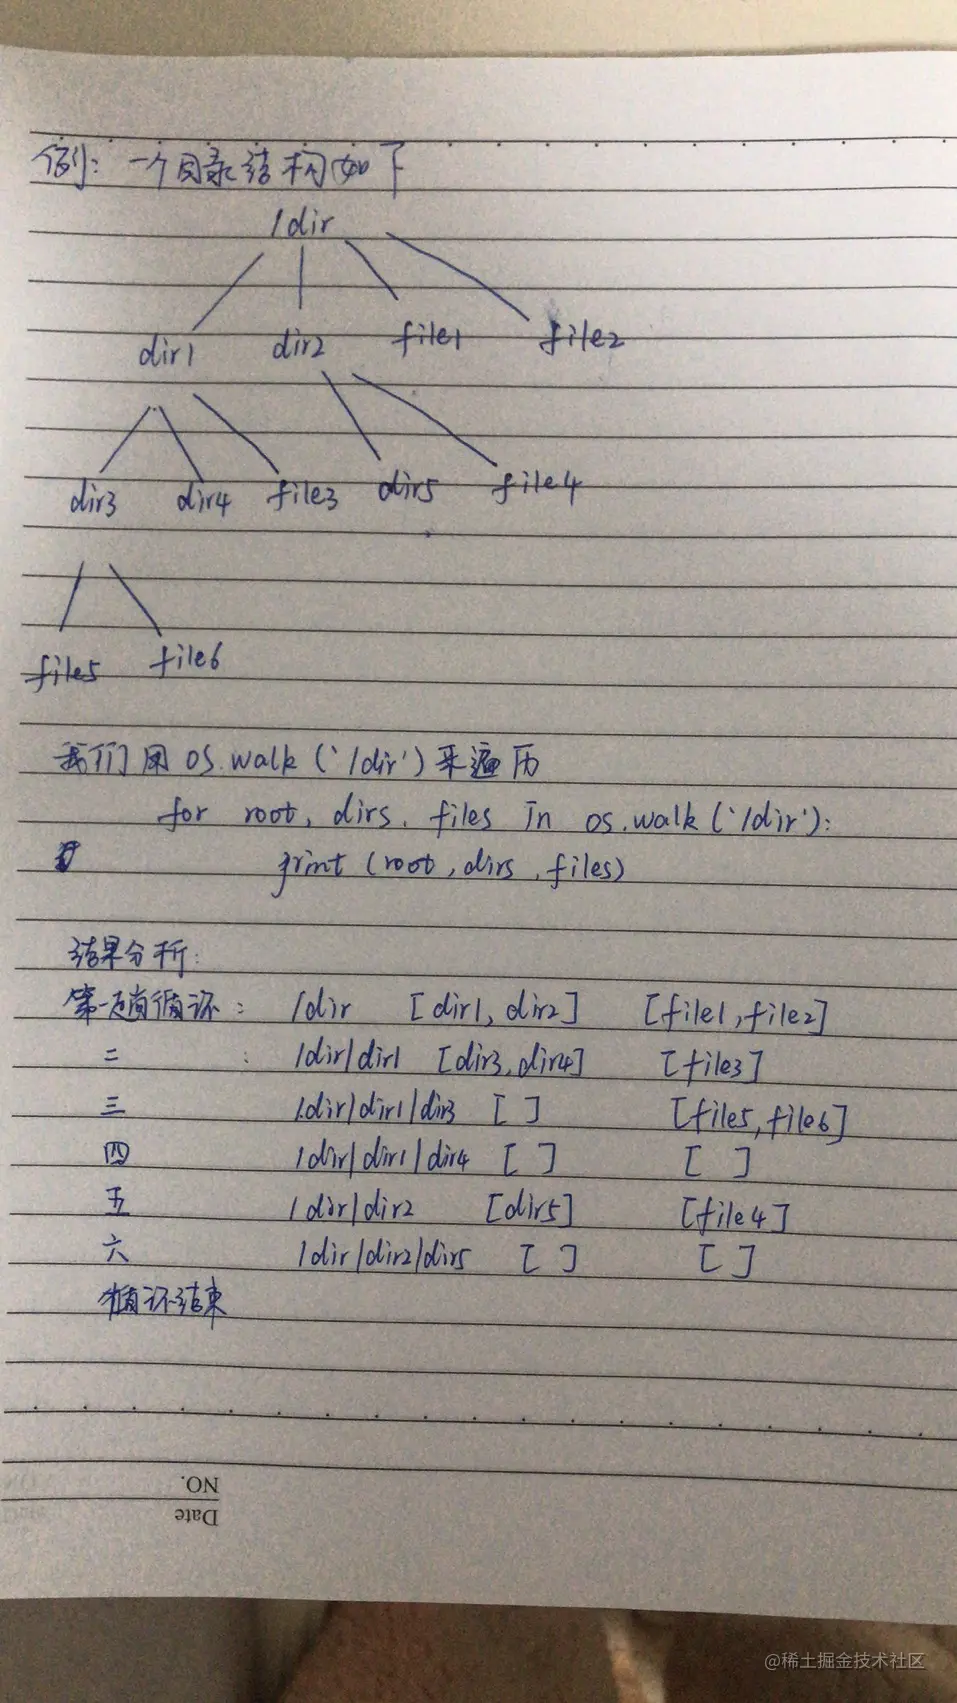 例: 一个目录结构如下
/dir
dir1 dir2 file1 file2
dir3 dir4 file3 dir5 file4
file5 file6
我们用 os.walk ('/dir') 来遍历
for root, dirs, files in os.walk ('/dir'):
print (root, dirs, files)
结果分析:
第一趟循环: /dir [dir1, dir2] [file1, file2]
二 : /dir/dir1 [dir3, dir4] [file3]
三 /dir/dir1/dir3 [ ] [file5, file6]
四 /dir/dir1/dir4 [ ] [ ]
五 /dir/dir2 [dir5] [file4]
六 /dir/dir2/dir5 [ ] [ ]
循环结束
NO.
Date
@稀土掘金技术社区